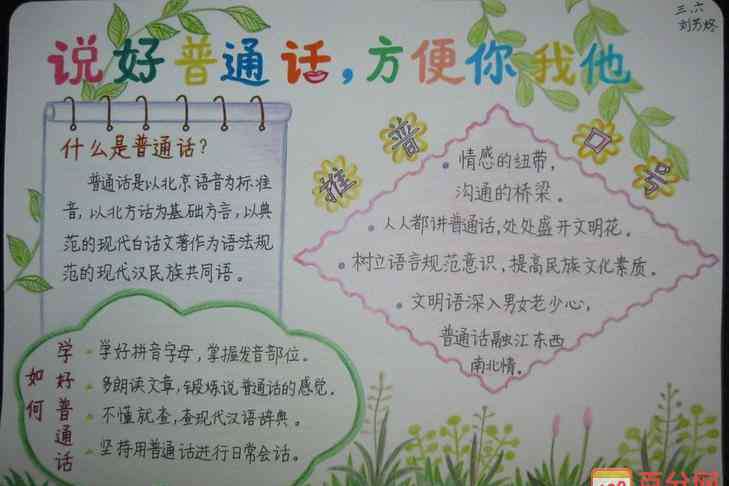 三.六
说好普通话,方便你我他
什么是普通话?
普通话是以北京语音为标准
音,以北方话为基础方言,以典
范的现代白话文著作为语法规
范的现代汉民族共同语。
推普口号
情感的纽带,
沟通的桥梁。
人人都讲普通话,处处盛开文明花。
树立语言规范意识,提高民族文化素质。
文明语深入男女老少心,
普通话融汇东西
南北情。
如何
学好普通话
学好拼音字母,掌握发音部位。
多朗读文章,锻炼说普通话的感觉。
不懂就查,查现代汉语辞典。
坚持用普通话进行日常会话。
百分网